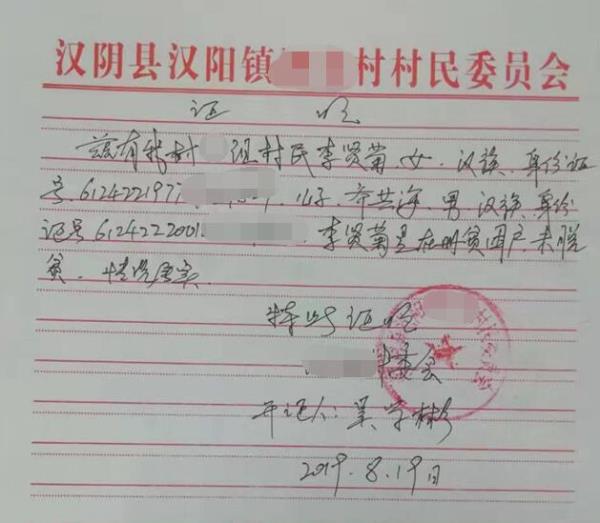 汉阴县汉阳镇 村村民委员会
证 明
兹有我村 组村民李贤菊，女，汉族，身份证
号，6124221977 儿子， 共海，男，汉族，身份
证号6124222001 李贤菊是在册贫困户未脱
贫，情况属实。
特此证明
村委会
开证人：吴学彬
2019.8.19日